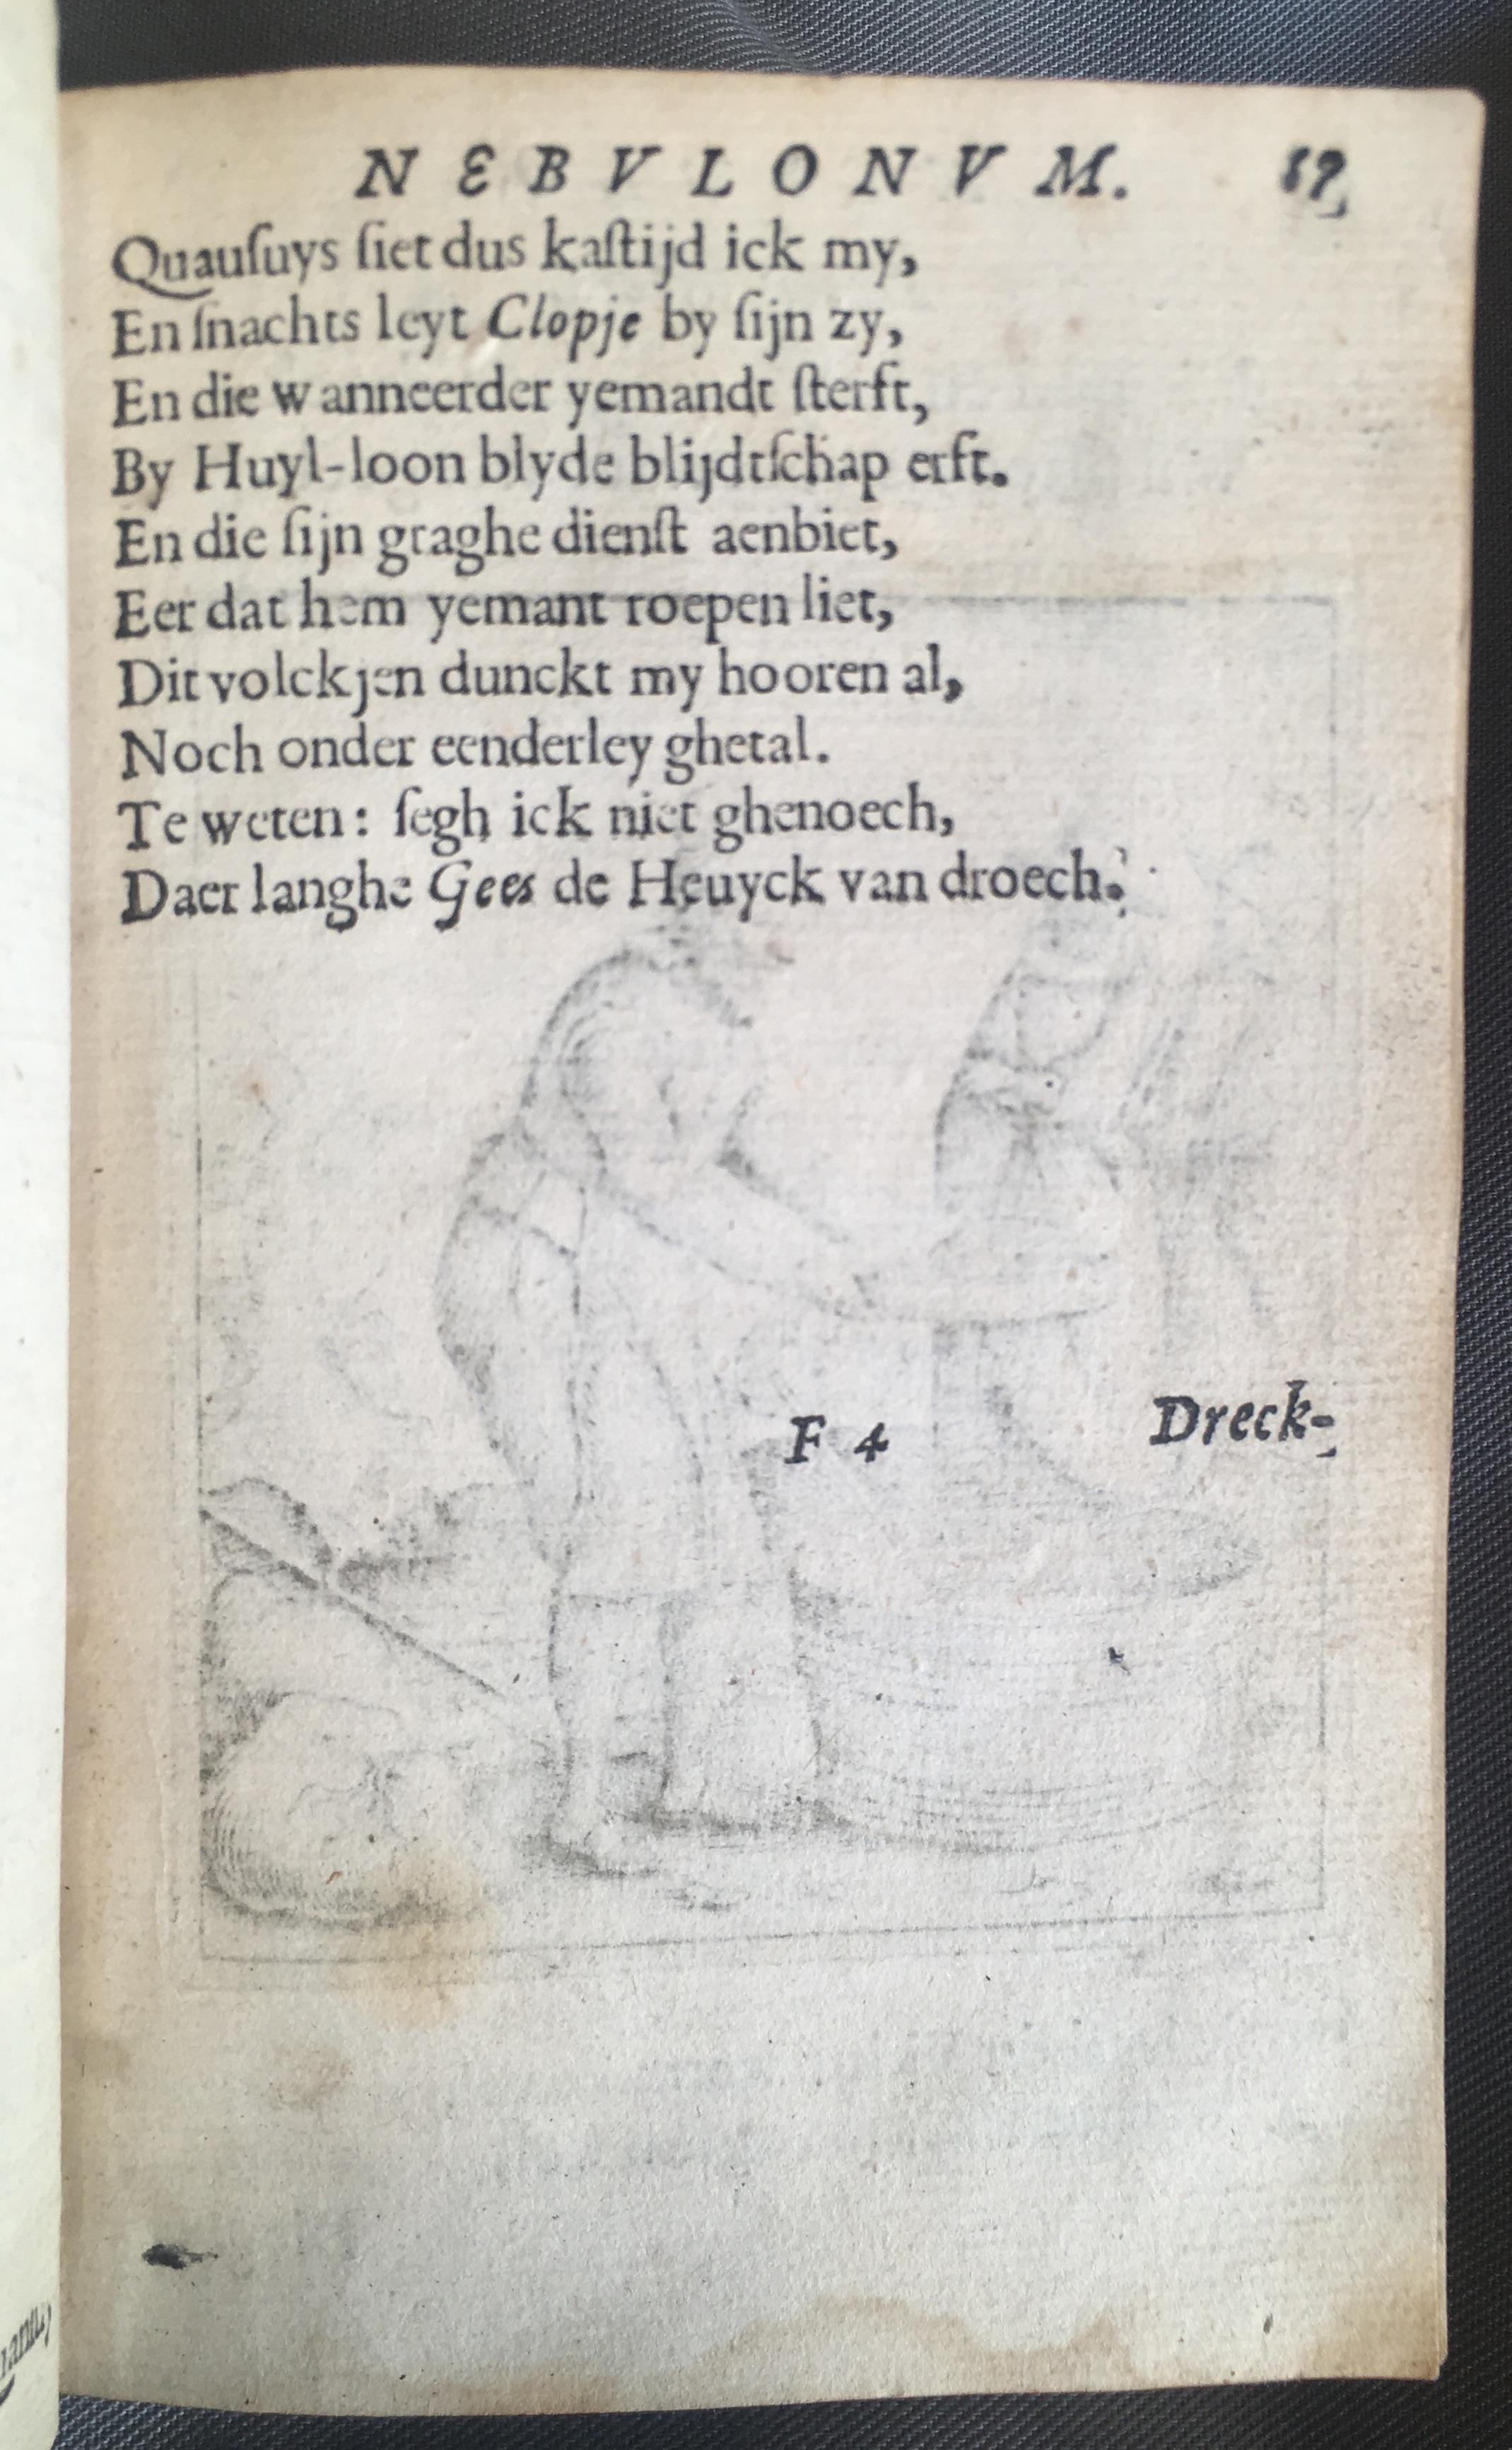 NEBVLONVM.
Quauſuys ſiet dus kaſtijd ick my,
En ſnachts leyt Clopje by ſijn zy,
En die wanneerder yemandt ſterft,
By Huyl-loon blyde blijdtſchap erft.
En die ſijn graghe dienſt aenbiet,
Eer dat hem yemant roepen liet,
Dit volckjen dunckt my hooren al,
Noch onder eenderley ghetal.
Te weten: ſegh ick niet ghenoech,
Daer langhe Gees de Heuyck van droech.
F 4 Dreck-